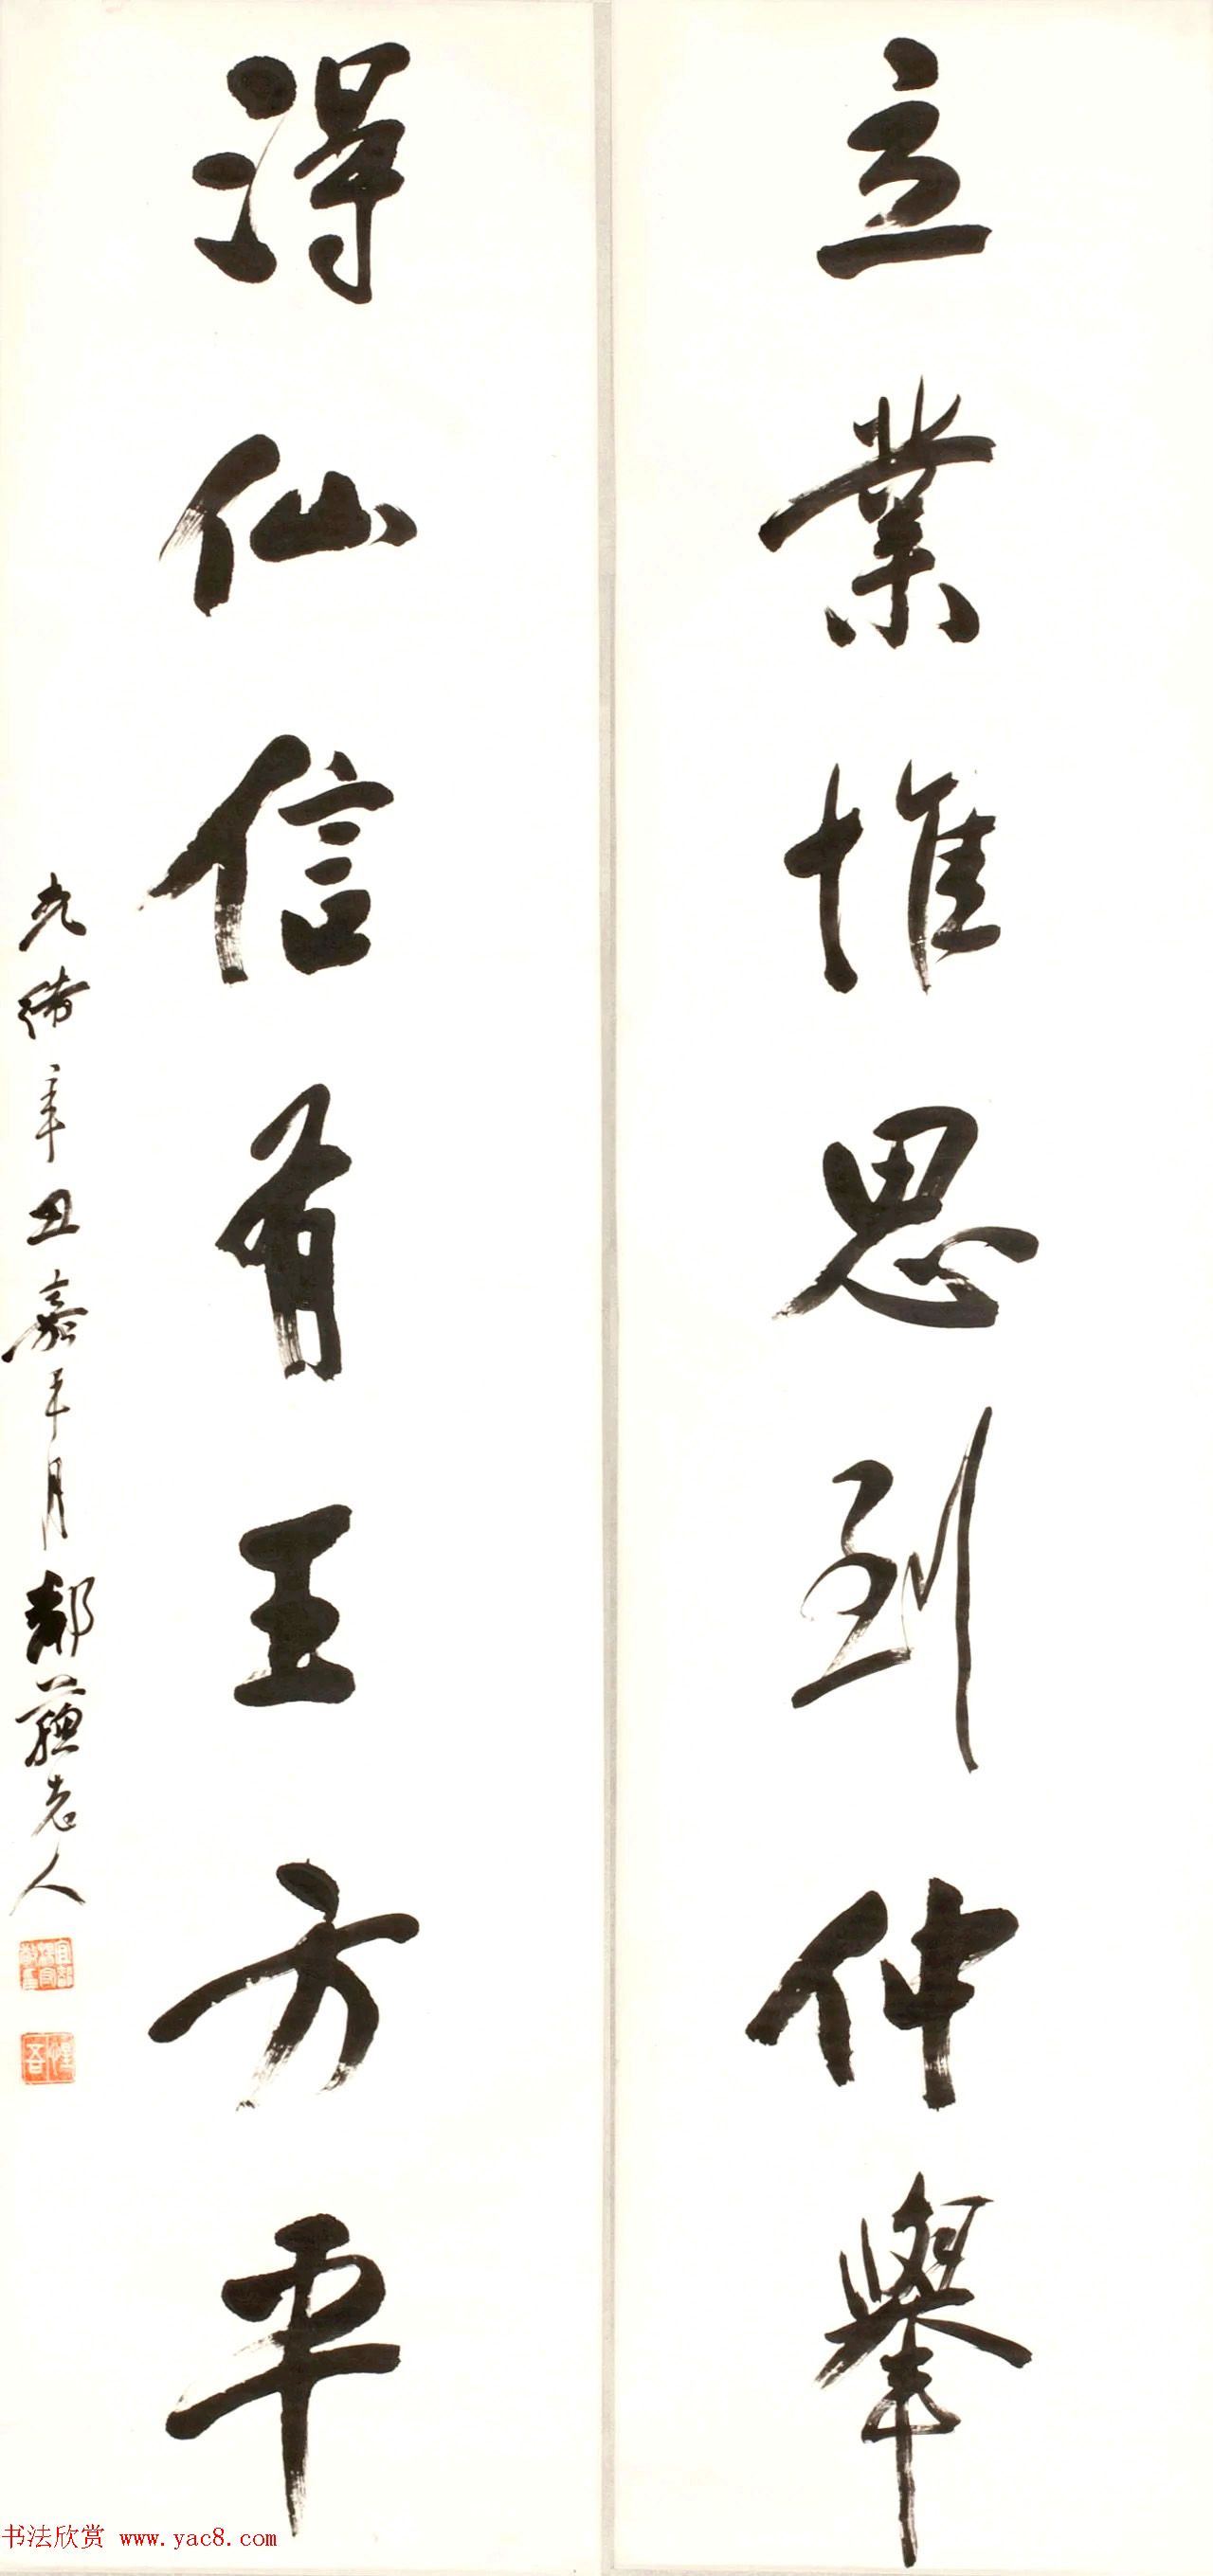 立業惟思到仲舉
得仙信有王方平
光緒辛丑嘉平月鄰蘇老人
惺吾
书法欣赏 www.yac8.com